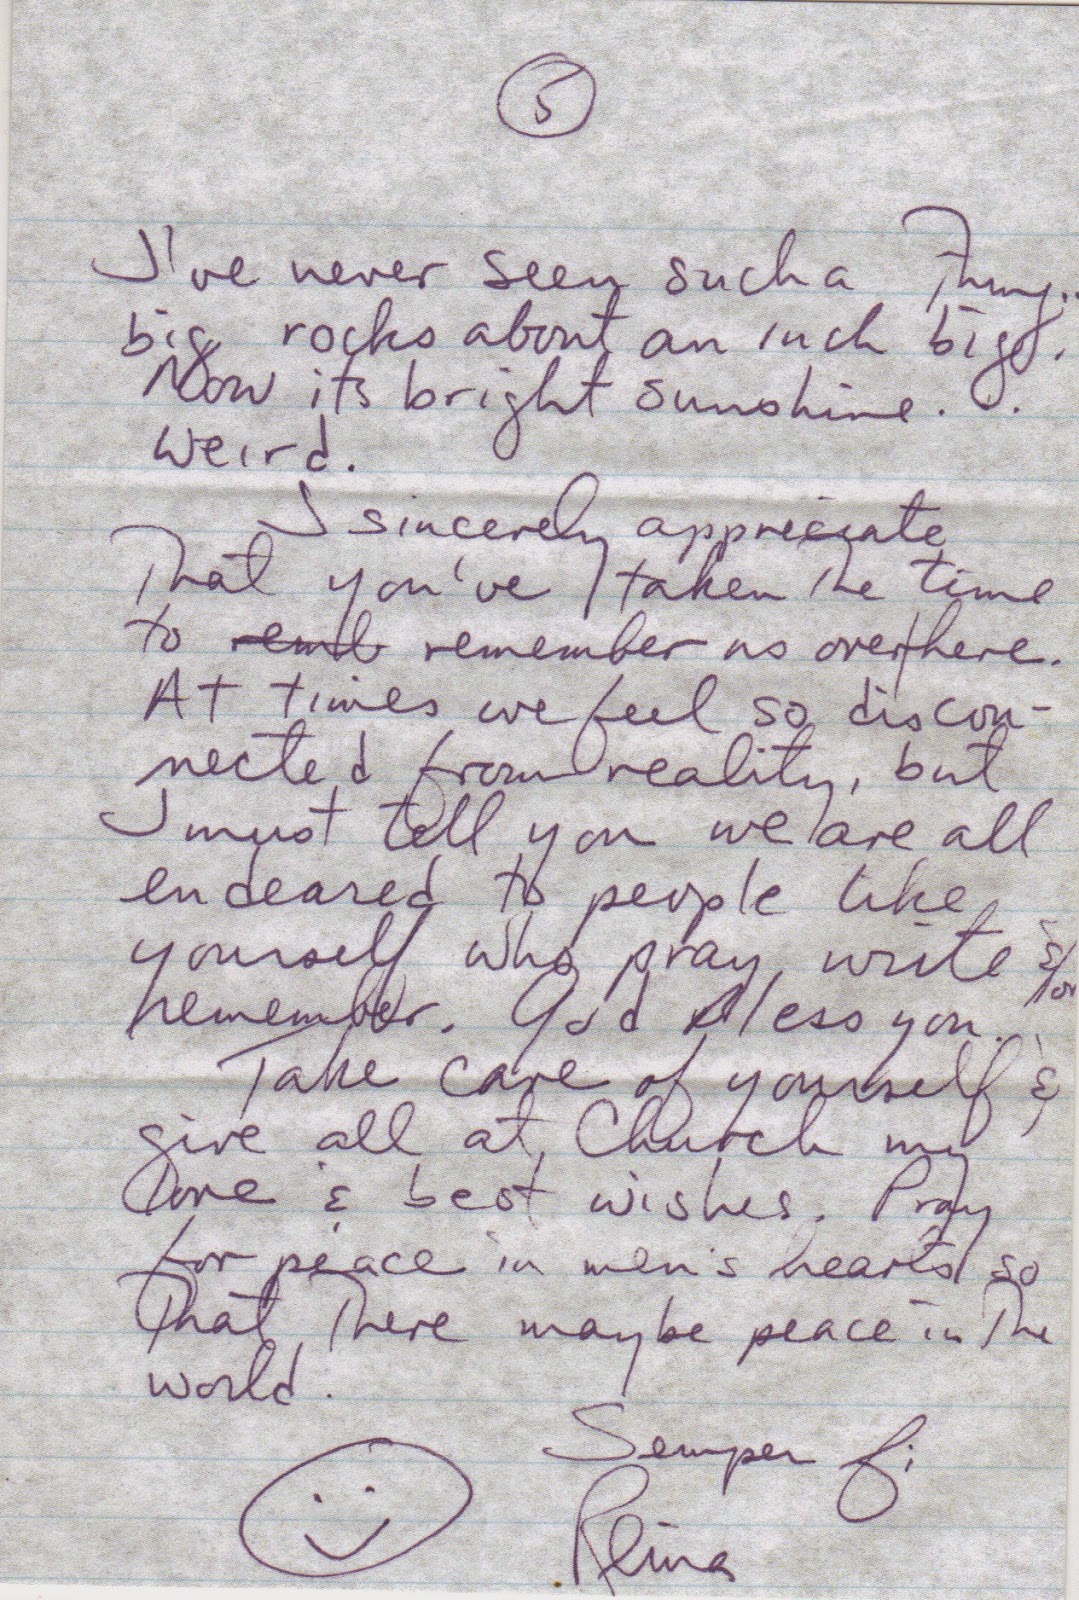 5
I've never seen such a Thing..
big rocks about an inch big.
Now its bright sunshine. . .
weird.
I sincerely appreciate
That you've taken The time
to remb remember us over there.
At times we feel so discon-
nected from reality, but
I must tell you we are all
endeared to people like
yourself who pray, write &/or
remember. God bless you.
Take care of yourself &
give all at Church my
love & best wishes. Pray
for peace in men's hearts so
That There maybe peace in The
world.
Semper fi